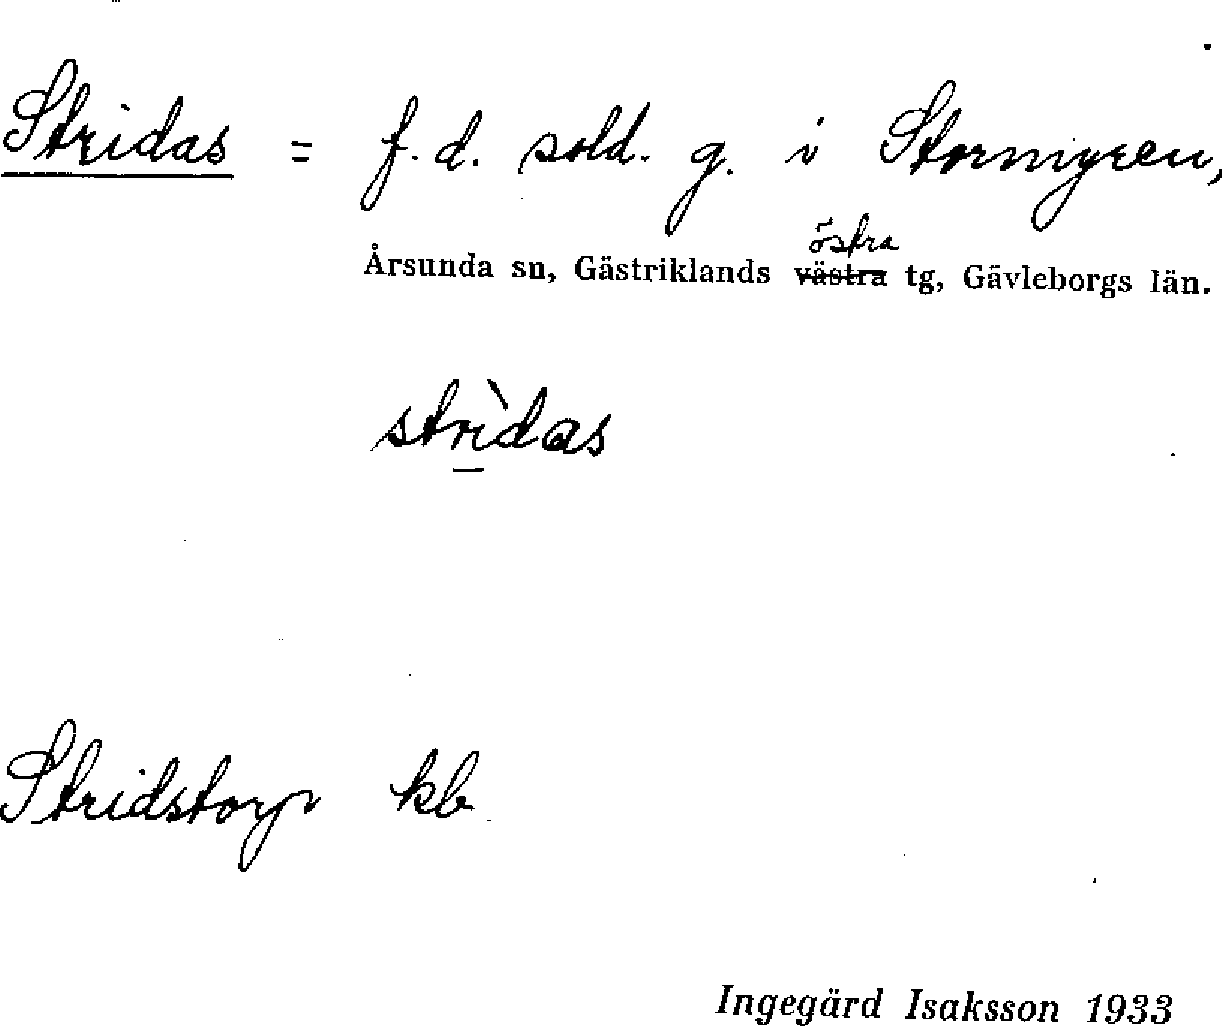 Stridas = f. d. sold. g. i Stormyren,
östra
Årsunda sn, Gästriklands västra tg, Gävleborgs län.
strìdas
Stridstorp kb
Ingegärd Isaksson 1933